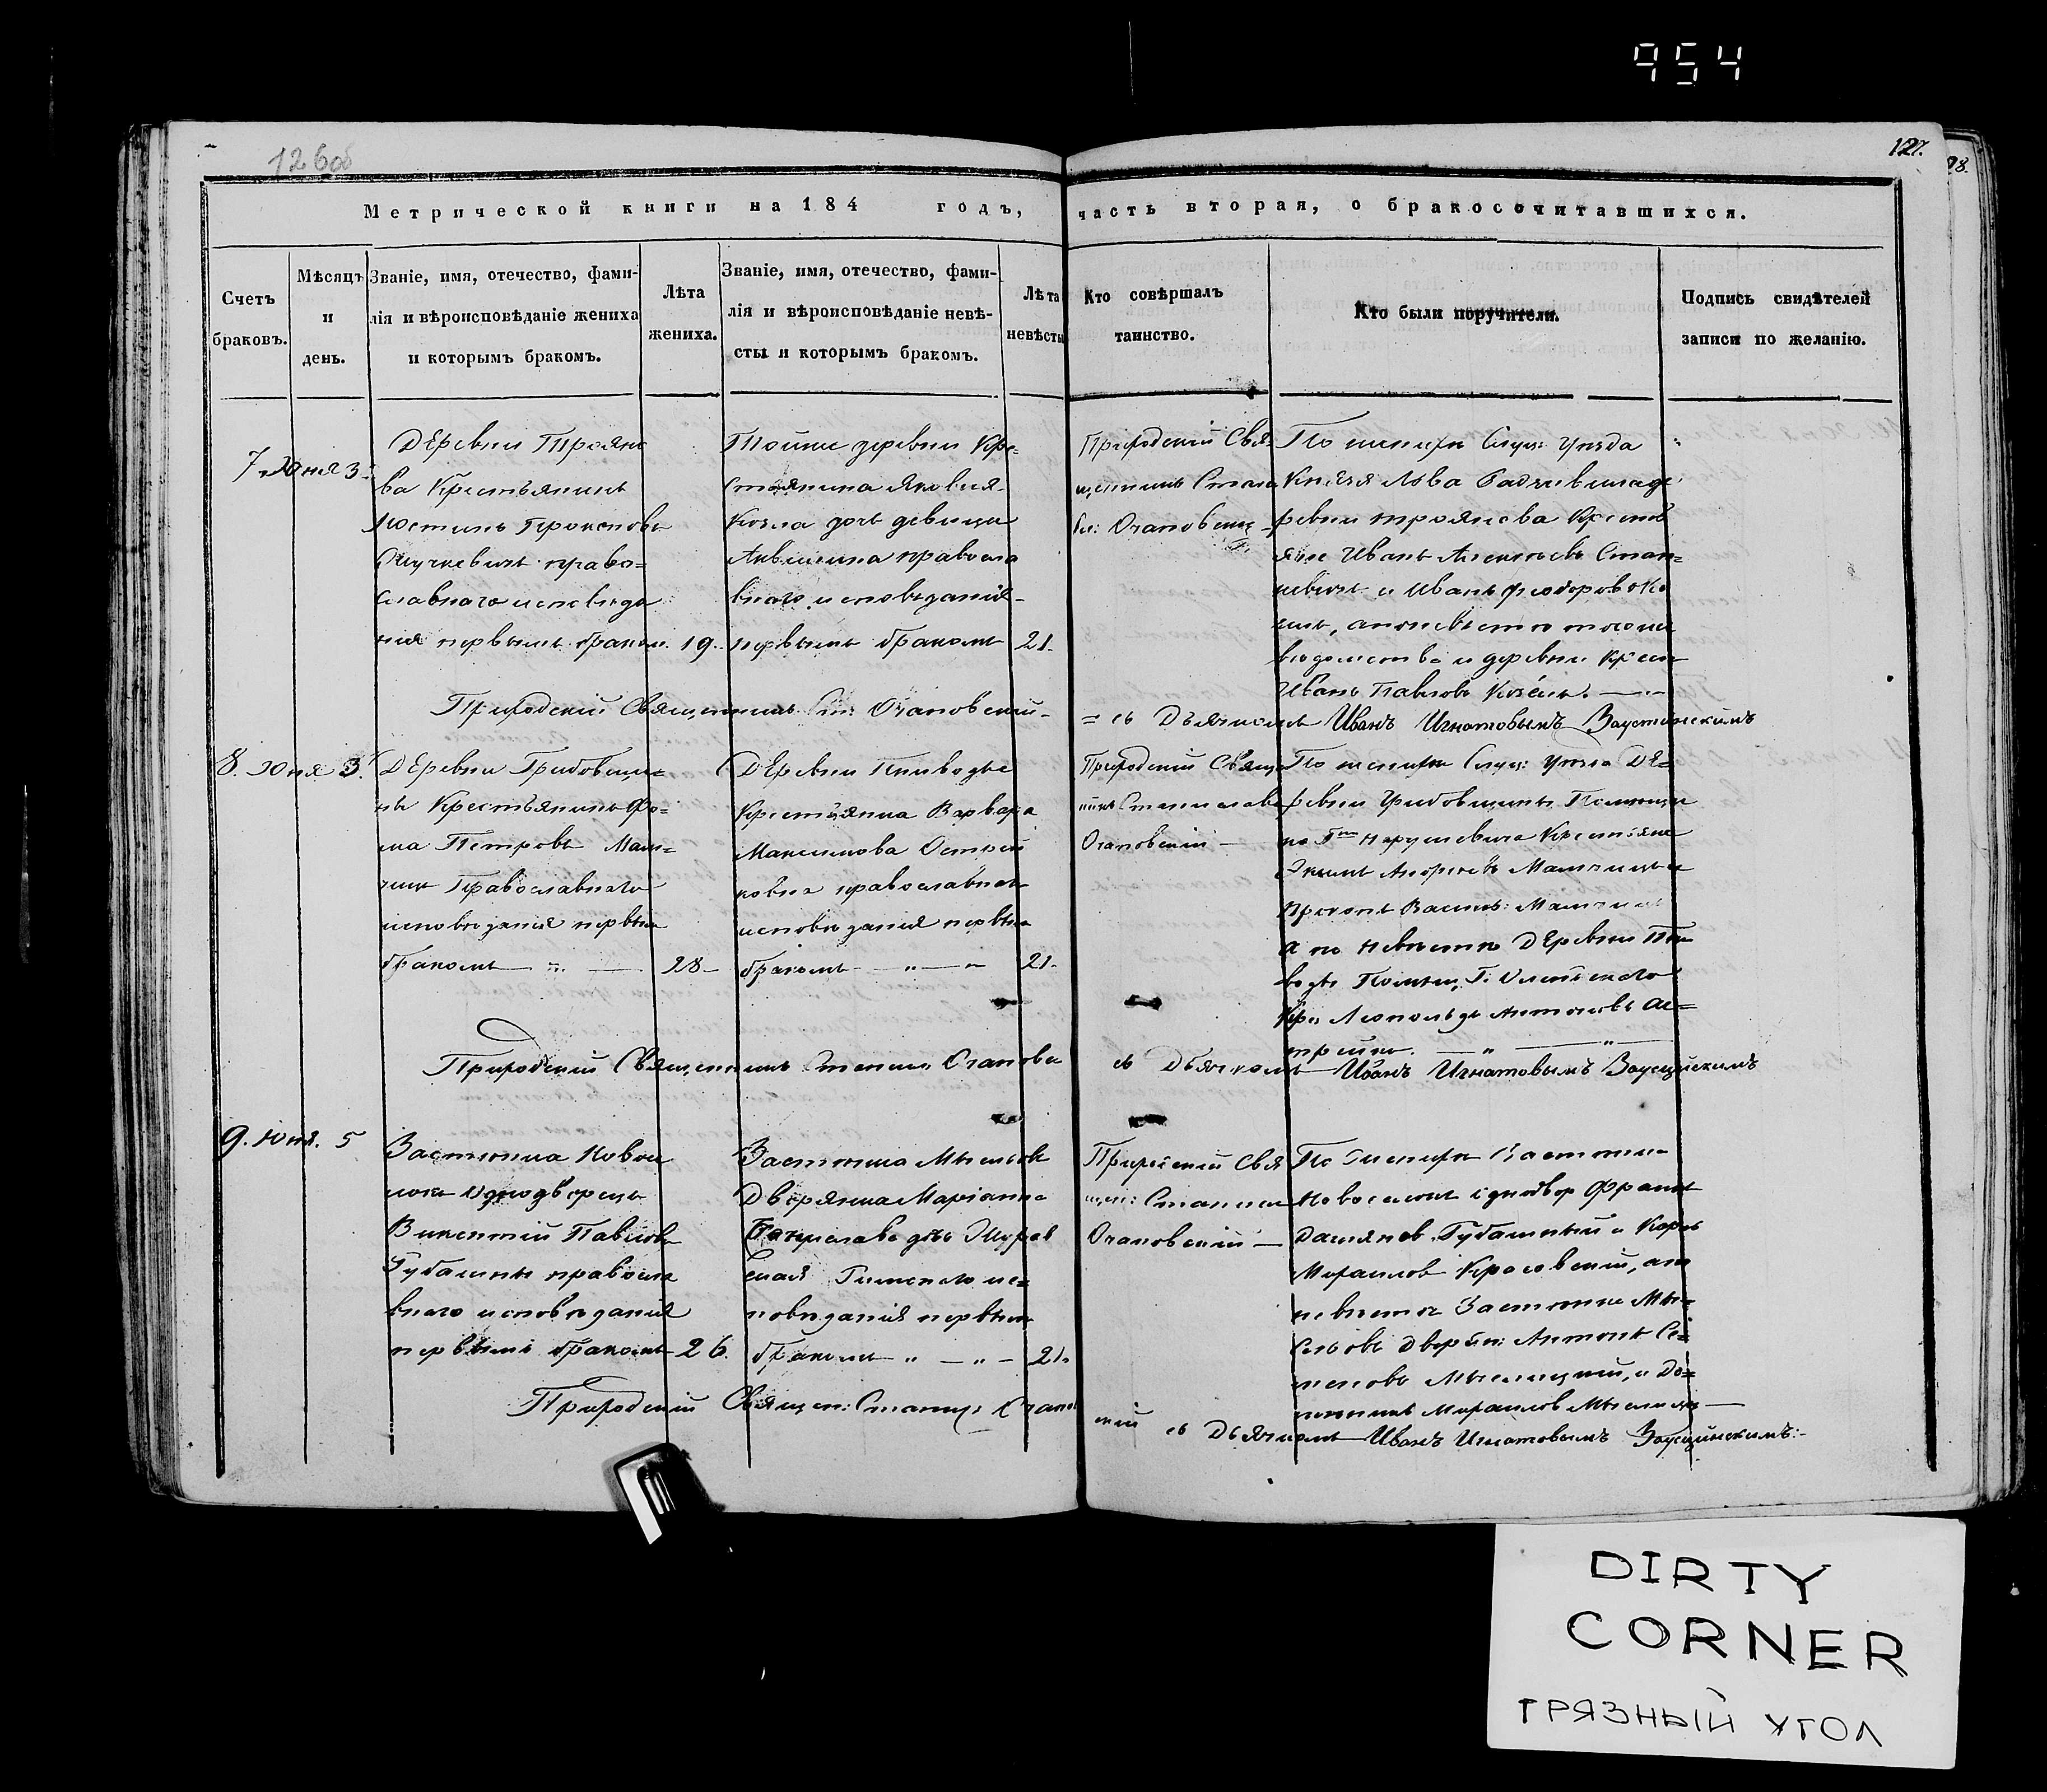 954
126об
127.
28.
Метрической книги на 184 годъ, часть вторая, о бракосочитавшихся.
Счетъ браковъ.
Мѣсяцъ и день.
Званіе, имя, отечество, фами-
лія и вѣроисповѣданіе жениха
и которымъ бракомъ.
Лѣта жениха.
Званіе, имя, отечество, фами-
лія и вѣроисповѣданіе невѣ-
сты и которымъ бракомъ.
Лѣта невѣсты
Кто совѣршалъ
таинство.
Кто были поручители.
Подпись свидѣтелей
записи по желанію.
7. Юня 3.
Деревни Трояно
ва Крестьянинъ
Іюстинъ Прокоповъ
православнаго исповѣда
нія первымъ бракомъ. 19.
Тойже деревни Кре-
стьянина Яковля
Козла дочь девица
Аквилина правосла
внаго исповѣданія
первымъ бракомъ 21.
Приходскій Свя-
щенникъ Стани
сл: Очановскій
По женихѣ Слуц: Уѣзда
Князя Льва Радзивила де
ревни Троянова Крестья
яне Иванъ Алексѣевъ Стан-
кевичъ и Иванъ Феодоровъ
а по невѣстѣ тогоже
вѣдомства и деревни Крест
Иванъ Павловъ Козелъ.
Приходскій Священникъ Ст: Очановскій
= съ Дьячкомъ Иванъ Игнатовымъ Заустинскимъ
8. Юня 3.
Деревни Грибовщи=
нъ Крестьянинъ Фо=
ма Петровъ Мам=
чицъ Православнаго
исповѣданія первымъ
бракомъ 28
Деревни Пиводы
Крестьянка Варвара
Максимова Острей
ковна православнаго
исповѣданія первымъ
бракомъ 21.
Приходскій Свяще
нникъ Станиславъ
Очановскій
По женихѣ Слуц: Уѣзда Де=
ревни Грибовщинъ Помѣщи
ка Гна Нарушевича Крестьяне
Андреевъ Мамчицъ и
Прокопъ Васил: Мамчицъ
а по невѣстѣ Деревни Пи
воды Помѣщ. Г.
Кр: Леопольдъ Антоновъ Ос=
трейко.
Приходскій Священникъ Станис: Очановск
съ Дьячкомъ Иванъ Игнатовымъ Заусцинскимъ
9. Юня. 5
Застѣнка Новосі
локъ Однодворецъ
Викентій Павловъ
Губашнъ правосла
внаго исповѣданія
первымъ бракомъ 26.
Застѣнка Мысловъ
Дворянка Маріанна
Болеслава дочь Журав
ская Римскаго ис=
повѣданія первымъ
бракомъ 21.
Приходскій Свя
щен: Станисл
Очановскій
По Женихѣ Застѣнка
Новоселокъ однодвор Франц
Дамянов. Губашный и Карлъ
Михаиловъ Красовскій, а по
невѣстѣ Застѣнка Мы=
словъ Дворян: Антонъ Се=
меновъ Мыслицкій, и До=
миникъ Михаиловъ
Приходскій Священ: Станис: Очанов
скій съ Дьячкомъ Иванъ Игнатовымъ Заусцинскимъ:-
DIRTY
CORNER
ГРЯЗНЫЙ УГОЛ